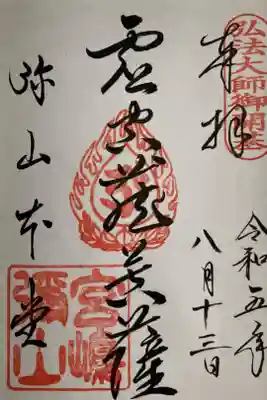 弘法大師御開基
奉拝
令和五年
八月十三日
虚空蔵菩薩
弥山本堂
宮嶋
彌山